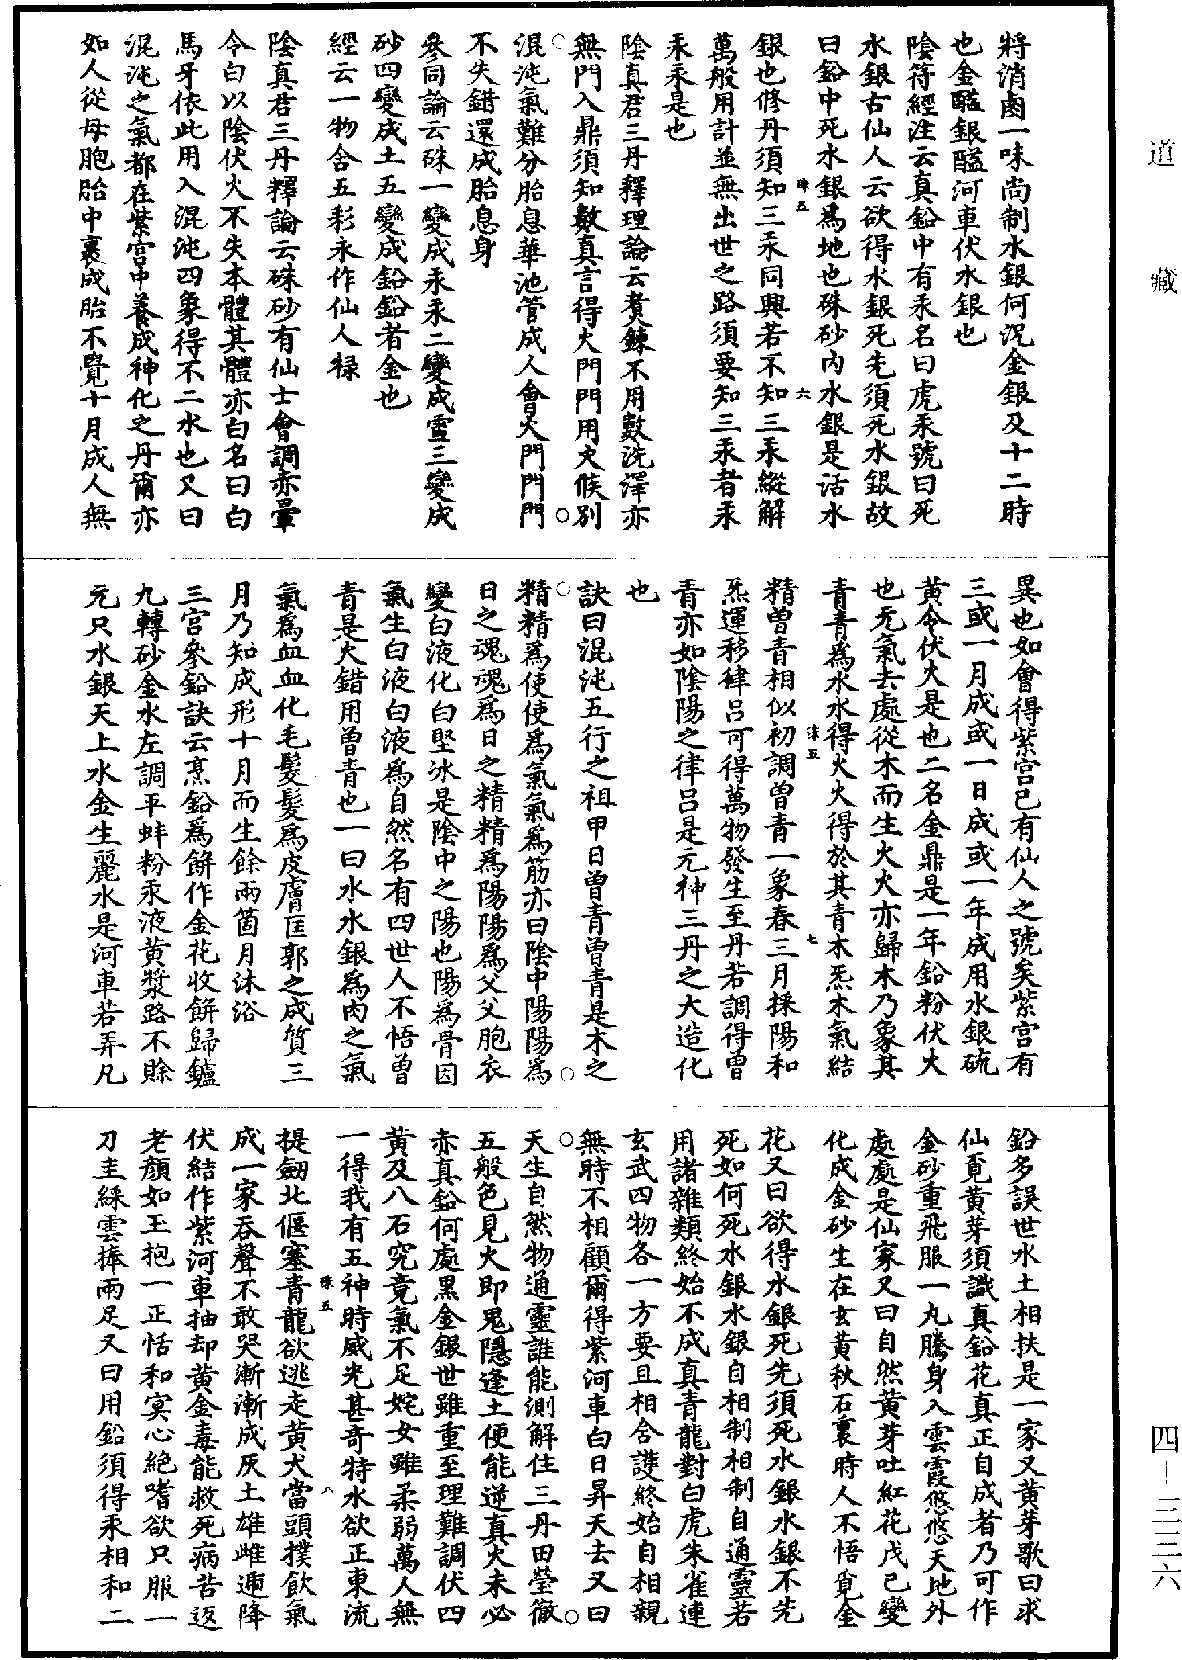 道藏
將消鹵一味尚制水銀何況金銀及十二時
也金醯銀醯河車伏水銀也
陰符經注云真鉛中有汞名曰虎汞號曰死
水銀古仙人云欲得水銀死先須死水銀故
曰鉛中死水銀爲地也硃砂內水銀是活水
銀也修丹須知三汞同興若不知三汞縱解
萬般用計並無出世之路須要知三汞者汞
汞汞是也
陰真君三丹釋理論云煑鍊不用數洗澤亦
無門入鼎須知數真言得火門門用火候別
混沌氣難分胎息華池管成人會火門門門
不失錯還成胎息身
參同論云硃一變成汞汞二變成䨩三變成
砂四變成土五變成鉛鉛者金也
經云一物含五彩永作仙人祿
陰真君三丹釋論云硃砂有仙士會調亦暈
令白以陰伏火不失本體其體亦白名曰白
馬牙依此用入混沌四象得不二水也又曰
混沌之氣都在紫宮中養成神化之丹爾亦
如人從母胞胎中裹成胎不覺十月成人無
異也如會得紫宮已有仙人之號矣紫宮有
三或一月成或一日成或一年成用水銀硫
黃令伏火是也二名金鼎是一年鉛粉伏火
也无氣去處從木而生火火亦歸木乃象其
青青爲水水得火火得於其青木炁木氣結
精曾青相似初調曾青一象春三月採陽和
炁運移律呂可得萬物發生至丹若調得曾
青亦如陰陽之律呂是元神三丹之大造化
也
訣曰混沌五行之祖甲日曾青曾青是木之
精精爲使使爲氣氣爲筋亦曰陰中陽陽爲
日之魂魂爲日之精精爲陽陽爲父父胞衣
變白液化白堅冰是陰中之陽也陽爲骨因
氣生白液白液爲自然名有四世人不悟曾
青是大錯用曾青也一曰水水銀爲肉之氣
氣爲血血化毛髮髮爲皮膚匡郭之成質三
月乃知成形十月而生餘兩箇月沐浴
三宮參鉛訣云烹鉛爲餅作金花收餅歸鑪
九轉砂金水左調平蚌粉汞液黃漿路不賒
元只水銀天上水金生麗水是河車若弄凡
鉛多誤世水土相扶是一家又黃芽歌曰求
仙覓黃芽須識真鉛花真正自成者乃可作
金砂重飛服一丸騰身入雲霞悠悠天地外
處處是仙家又曰自然黃芽吐紅花戊己變
化成金砂生在玄黃秋石裏時人不悟覓金
花又曰欲得水銀死先須死水銀水銀不先
死如何死水銀水銀自相制相制自通靈若
用諸雜類終始不成真青龍對白虎朱雀連
玄武四物各一方要且相含護終始自相親
無時不相顧爾得紫河車白日昇天去又曰
天生自然物通靈誰能測解住三丹田瑩徹
五般色見火即鬼隱逢土便能逆真火未必
赤真鉛何處黑金銀世雖重至理難調伏四
黃及八石究竟氣不足姹女雖柔弱萬人無
一得我有五神時威光甚奇特水欲正東流
提劒北偃塞青龍欲逃走黃犬當頭撲飲氣
成一家吞聲不敢哭漸漸成灰土雄雌遞降
伏結作紫河車抽却黃金毒能救死病苦返
老顏如玉抱一正恬和冥心絕嗜欲只服一
刀圭綵雲捧兩足又曰用鉛須得汞相和二
四—三三六